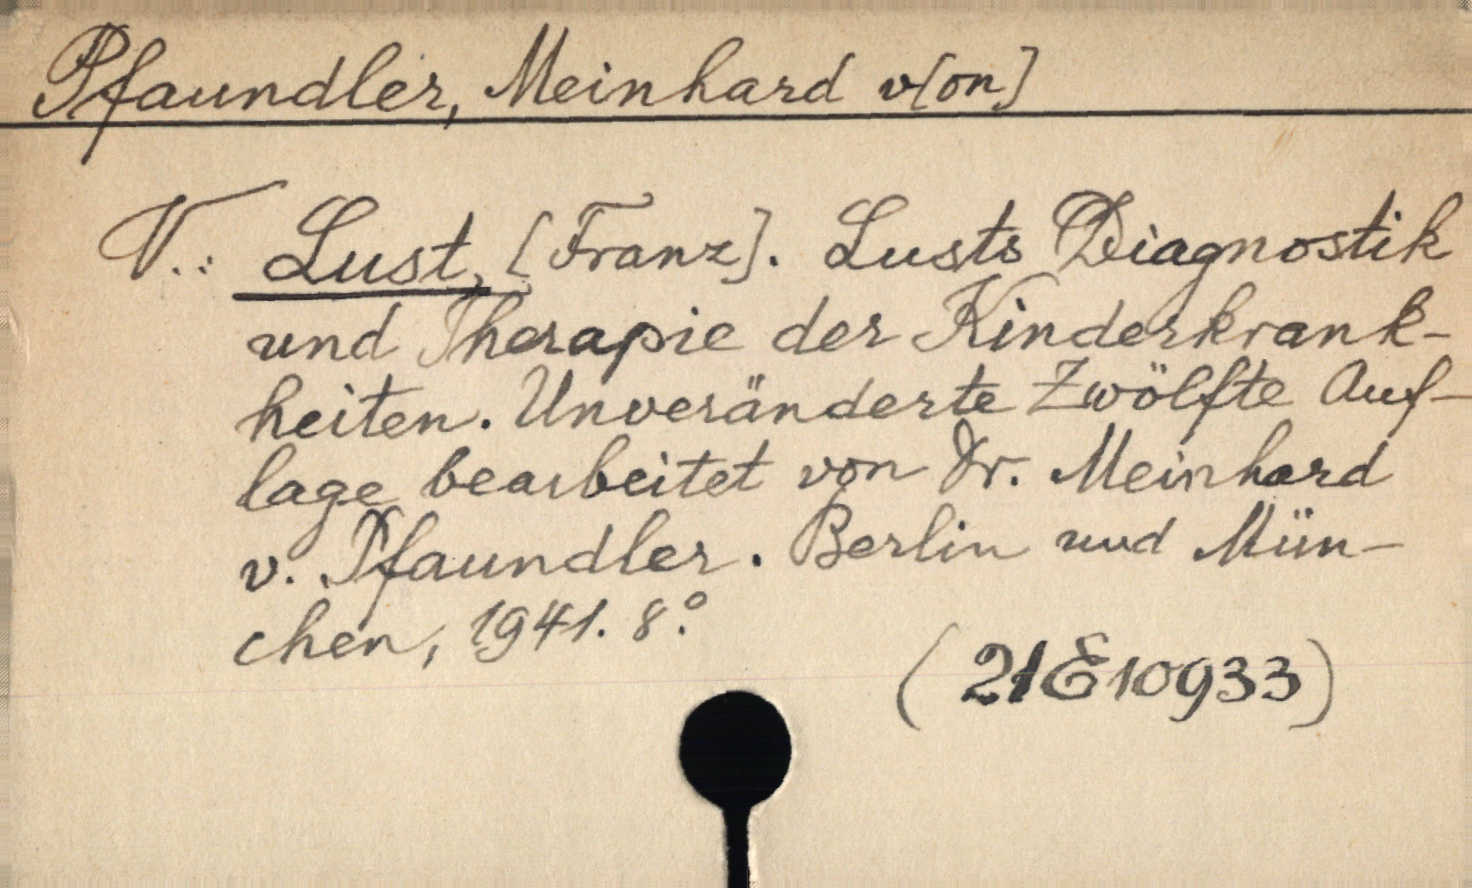 Pfaundler, Meinhard v[on]
V.: Lust, [Franz]. Lusts Diagnostik
und Therapie der Kinderkrank-
heiten. Unveränderte Zwölfte Auf-
lage bearbeitet von Dr. Meinhard
v. Pfaundler. Berlin und Mün-
chen, 1941. 8.°
(21E10933)